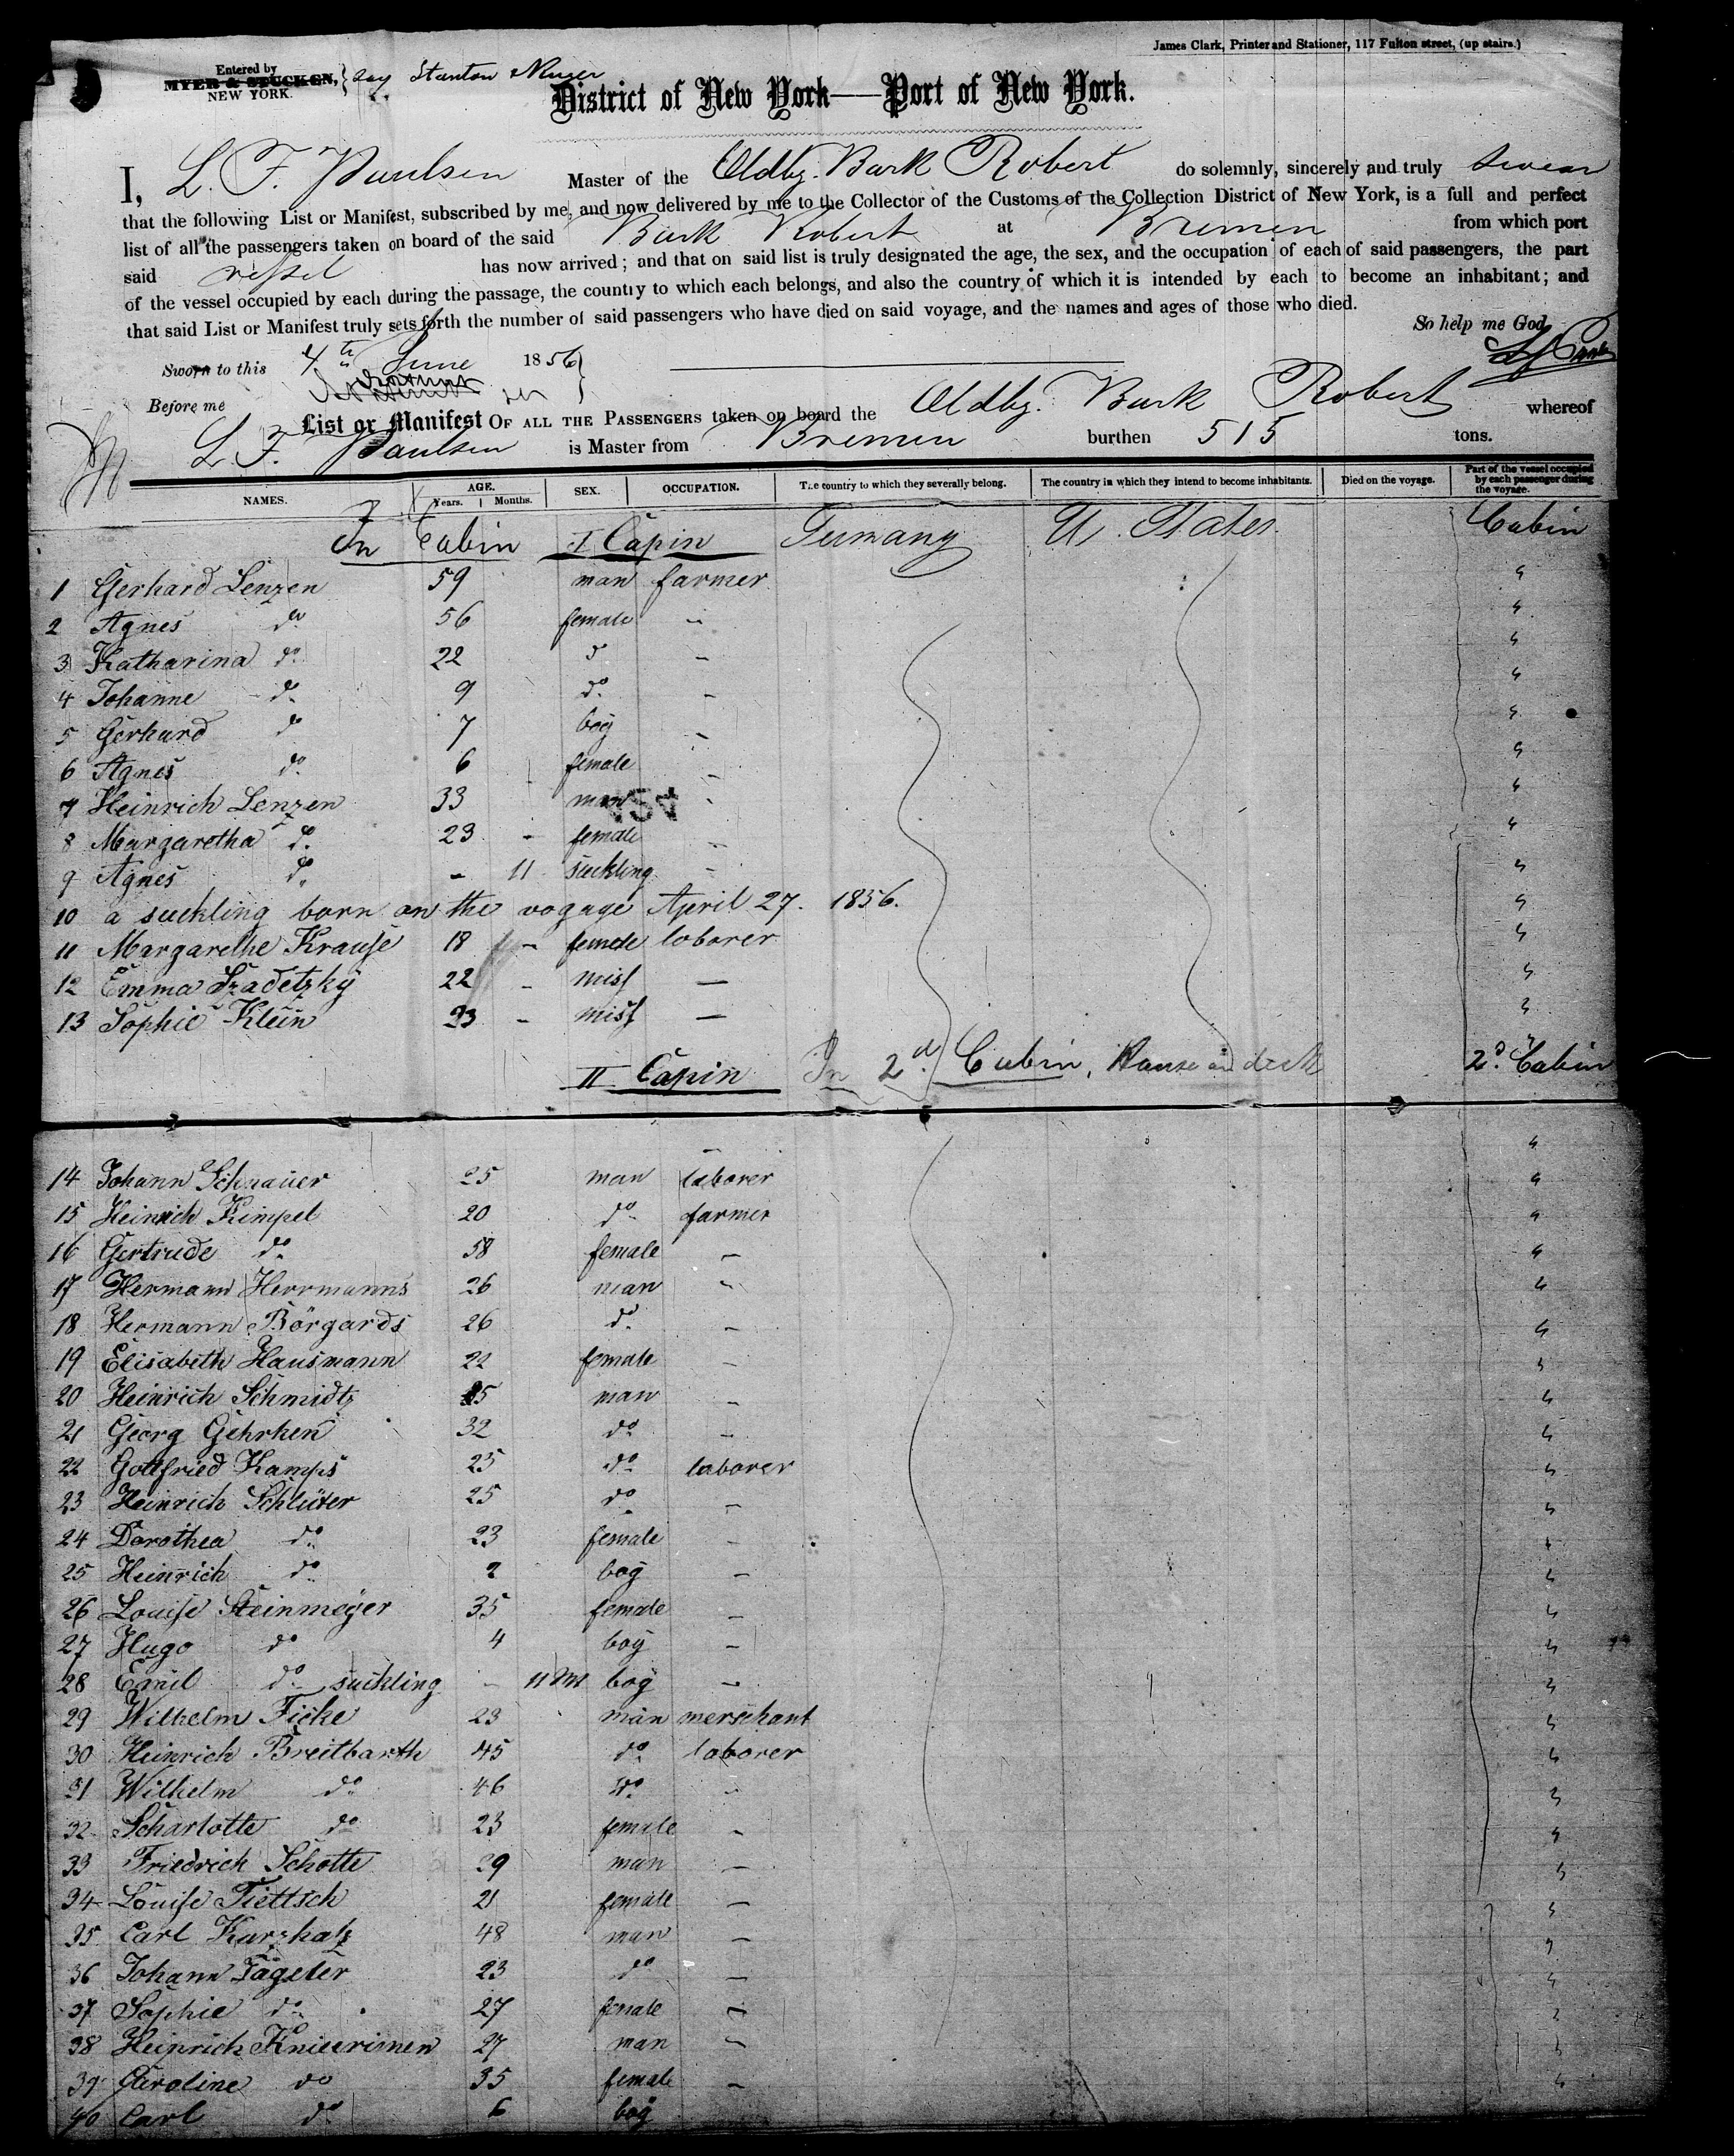 James Clark, Printer and Stationer, 117 Fulton street, (up stairs.)
Entered by
MYER & STUCKEN, say Stanton &
NEW YORK.
District of New York—Port of New York.
I, L. F. Paulsen Master of the Oldbg. Bark Robert do solemnly, sincerely and truly swear
that the following List or Manifest, subscribed by me, and now delivered by me to the Collector of the Customs of the Collection District of New York, is a full and perfect
list of all the passengers taken on board of the said Bark Robert at Bremen from which port
said vessel has now arrived; and that on said list is truly designated the age, the sex, and the occupation of each of said passengers, the part
of the vessel occupied by each during the passage, the country to which each belongs, and also the country of which it is intended by each to become an inhabitant; and
that said List or Manifest truly sets forth the number of said passengers who have died on said voyage, and the names and ages of those who died.
So help me God
Sworn to this 4th June 1856
Before me
List or Manifest OF ALL THE PASSENGERS taken on board the Oldbg. Bark Robert whereof
L. F. Paulsen is Master from Bremen burthen 515 tons.
NAMES. AGE. Years. Months. SEX. OCCUPATION. The country to which they severally belong. The country in which they intend to become inhabitants. Died on the voyage. Part of the vessel occupied by each passenger during the voyage.
In Cabin I Capin Germany U. States. Cabin
1 Gerhard Lenzen 59 man farmer "
2 Agnes do 56 female - "
3 Katharina do 22 d - "
4 Johanne do 9 do - "
5 Gerhard do 7 boy - "
6 Agnes do 6 female - "
7 Heinrich Lenzen 33 man - "
8 Margaretha do 23 - female - "
9 Agnes do - 11 suckling - "
10 a suckling born on the vogage April 27. 1856. "
11 Margarethe Krause 18 - female laborer "
12 Emma Szadetzky 22 - miss — "
13 Sophie Klein 23 - miss — "
II Capin In 2d Cabin, House on deck 2d Cabin
14 Johann Schnauer 25 man laborer "
15 Heinrich Kimpel 20 do farmer "
16 Gertrude do 58 female - "
17 Hermann Herrmanns 26 man - "
18 Hermann Börgards 26 do - "
19 Elisabeth Hausmann 22 female - "
20 Heinrich Schmidtz 25 man - "
21 Georg Gehrken 32 do - "
22 Gottfried Kamps 25 do laborer "
23 Heinrich Schlüter 25 do - "
24 Dorothea do 23 female - "
25 Heinrich do 2 boy - "
26 Louise Steinmeyer 35 female - "
27 Hugo do 4 boy - "
28 Emil do suckling - 11 M boy - "
29 Wilhelm Ficke 23 man merschant "
30 Heinrich Breitbarth 45 do laborer "
31 Wilhelm do 46 do - "
32 Scharlotte do 23 female - "
33 Friedrich Schotte 29 man - "
34 Louise Tiettsch 21 female - "
35 Carl Karzhals 48 man - "
36 Johann Tägeler 23 do - "
37 Sophie do 27 female - "
38 Heinrich Knieerimen 27 man - "
39 Caroline do 35 female - "
40 Carl do 6 boy